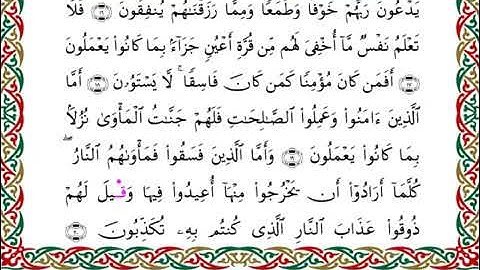 يَدْعُونَ رَبَّهُمْ خَوْفًا وَطَمَعًا وَمِمَّا رَزَقْنَٰهُمْ يُنفِقُونَ ١٦ فَلَا
تَعْلَمُ نَفْسٌ مَّآ أُخْفِىَ لَهُم مِّن قُرَّةِ أَعْيُنٍ جَزَآءًۢ بِمَا كَانُوا۟ يَعْمَلُونَ
١٧ أَفَمَن كَانَ مُؤْمِنًا كَمَن كَانَ فَاسِقًا ۚ لَّا يَسْتَوُۥنَ ١٨ أَمَّا
ٱلَّذِينَ ءَامَنُوا۟ وَعَمِلُوا۟ ٱلصَّٰلِحَٰتِ فَلَهُمْ جَنَّٰتُ ٱلْمَأْوَىٰ نُزُلًۢا
بِمَا كَانُوا۟ يَعْمَلُونَ ١٩ وَأَمَّا ٱلَّذِينَ فَسَقُوا۟ فَمَأْوَىٰهُمُ ٱلنَّارُ ۖ
كُلَّمَآ أَرَادُوٓا۟ أَن يَخْرُجُوا۟ مِنْهَآ أُعِيدُوا۟ فِيهَا وَقِيلَ لَهُمْ
ذُوقُوا۟ عَذَابَ ٱلنَّارِ ٱلَّذِى كُنتُم بِهِۦ تُكَذِّبُونَ ٢٠